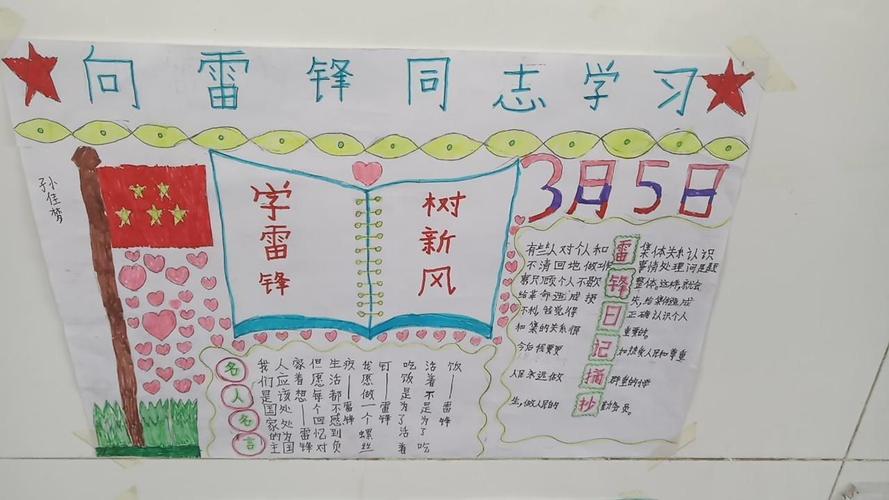 向雷锋同志学习
孙佳梦
学雷锋
树新风
3月5日
名人名言
我们是国家的主
人应该处处为国
家着想——雷锋
但愿每个回忆对
生活都不感到负
疚——雷锋
我愿做一个螺丝
钉——雷锋
吃饭是为了活着
活着不是为了吃
饭——雷锋
雷锋日记摘抄
有些人对个人和集体关系认识
不清 事情处理问题
只顾个人不 整体,这样,就会
给革命造成 失,给集体造成
不利,我觉得 正确认识个人
和集的关系 重要的。
今后我要更 和热爱人民和尊重
人民永远做 群重的
生,做人民的 勤务员。